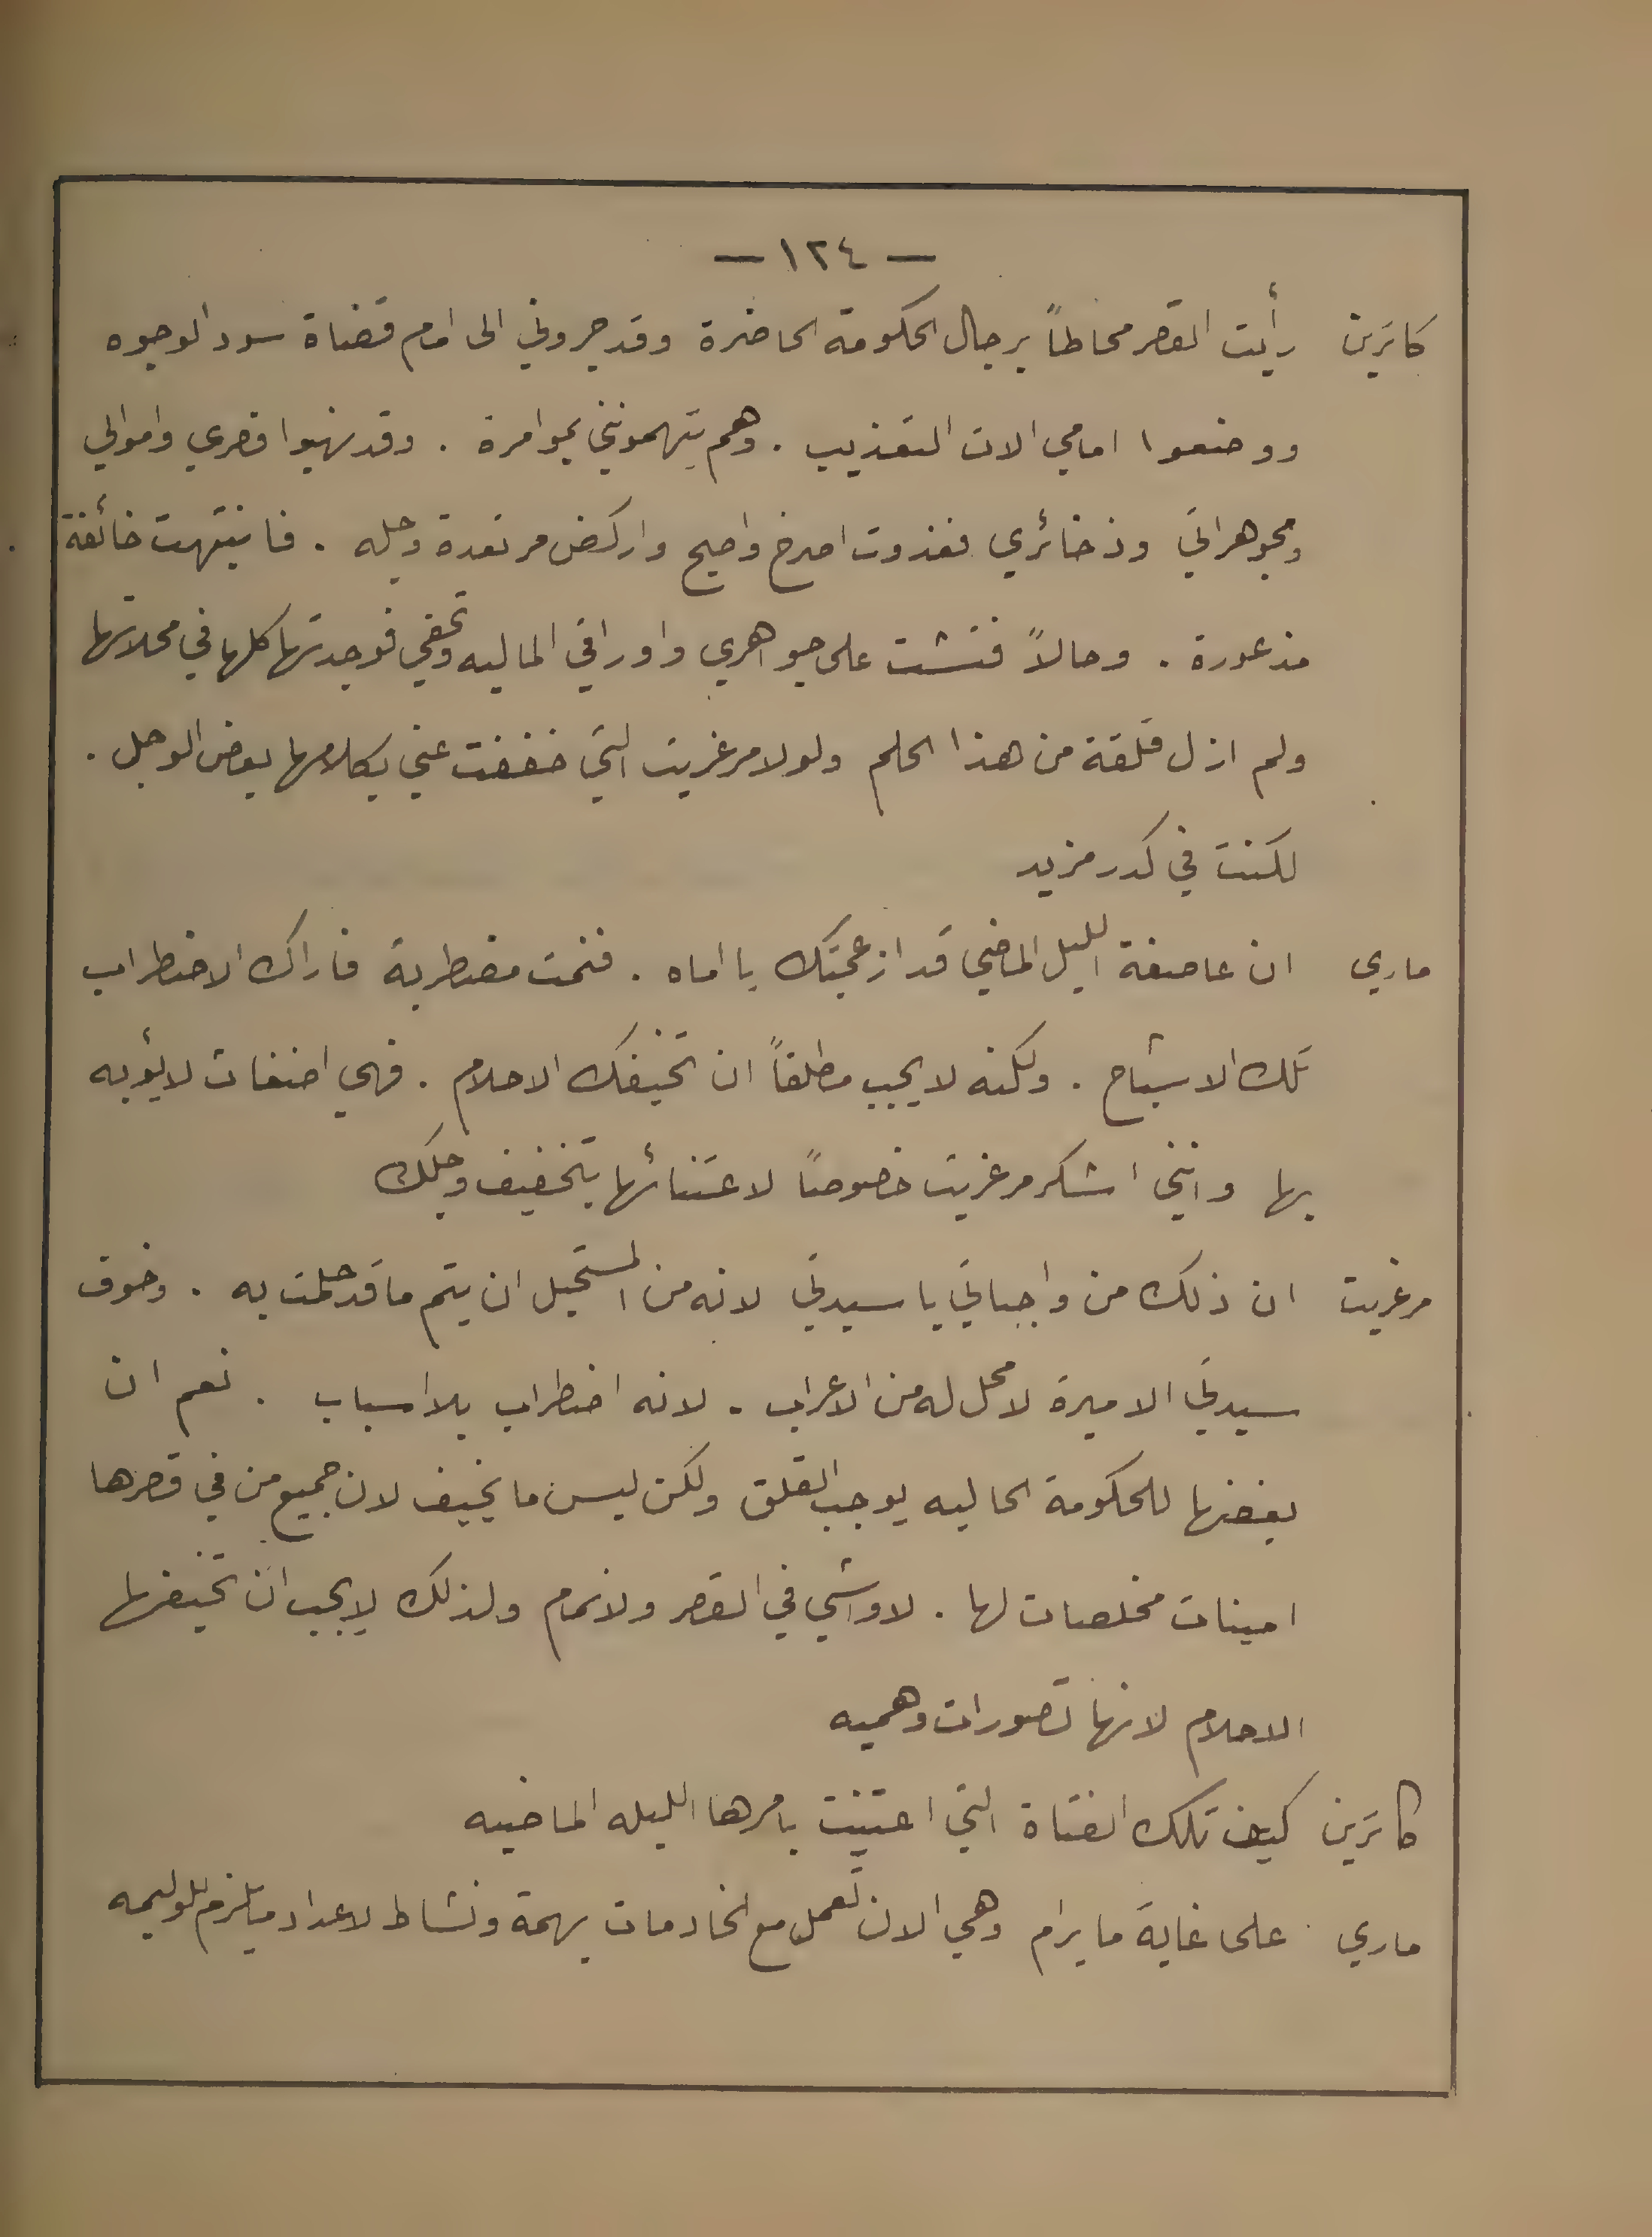 — ١٢٤ —
كاترين رأيت القصر محاطاً برجال الحكومة الحاضرة وقد جروني الى امام قضاة سود الوجوه
ووضعوا امامي الات التعذيب . وهم يتهمونني بموامرة . وقد نهبوا قصري واموالي
ومجوهراتي وذخائري فغدوت اصرخ واصيح واركض مرتعدة وجله . فانتبهت خائفة
مذعورة . وحالاً فتشت على جواهري واوراقي الماليه وتحفي فوجدتها كلها في محلاتها
ولم ازل قلقة من هذا الحلم ولولا مرغريت التي خففت عني بكلامها بعض الوجل .
لكنت في كدر مزيد
ماري ان عاصفة الليل الماضي قد ازعجتك يا اماه . فنمت مضطربة فاراك الاضطراب
تلك الاشباح . ولكنه لا يجب مطلقاً ان تخيفك الاحلام . فهي اضغاث لا يؤبه
بها وانني اشكر مرغريت خصوصاً لاعتنائها بتخفيف وجلك
مرغريت ان ذلك من واجباتي يا سيدتي لانه من المستحيل ان يتم ما قد حلمت به . وخوف
سيدتي الاميرة لا محل له من الاعراب . لانه اضطراب بلا اسباب . نعم ان
بغضها للحكومة الحاليه يوجب القلق ولكن ليس ما يخيف لان جميع من في قصرها
امينات مخلصات لها . لا واشي في القصر ولا نمام ولذلك لا يجب ان تخيفها
الاحلام لانها تصورات وهميه
كاترين كيف تلك الفتاة التي اعتنيت بامرها الليله الماضيه
ماري على غاية ما يرام وهي الان تعمل مع الخادمات بهمة ونشاط لاعداد ما يلزم للوليمه